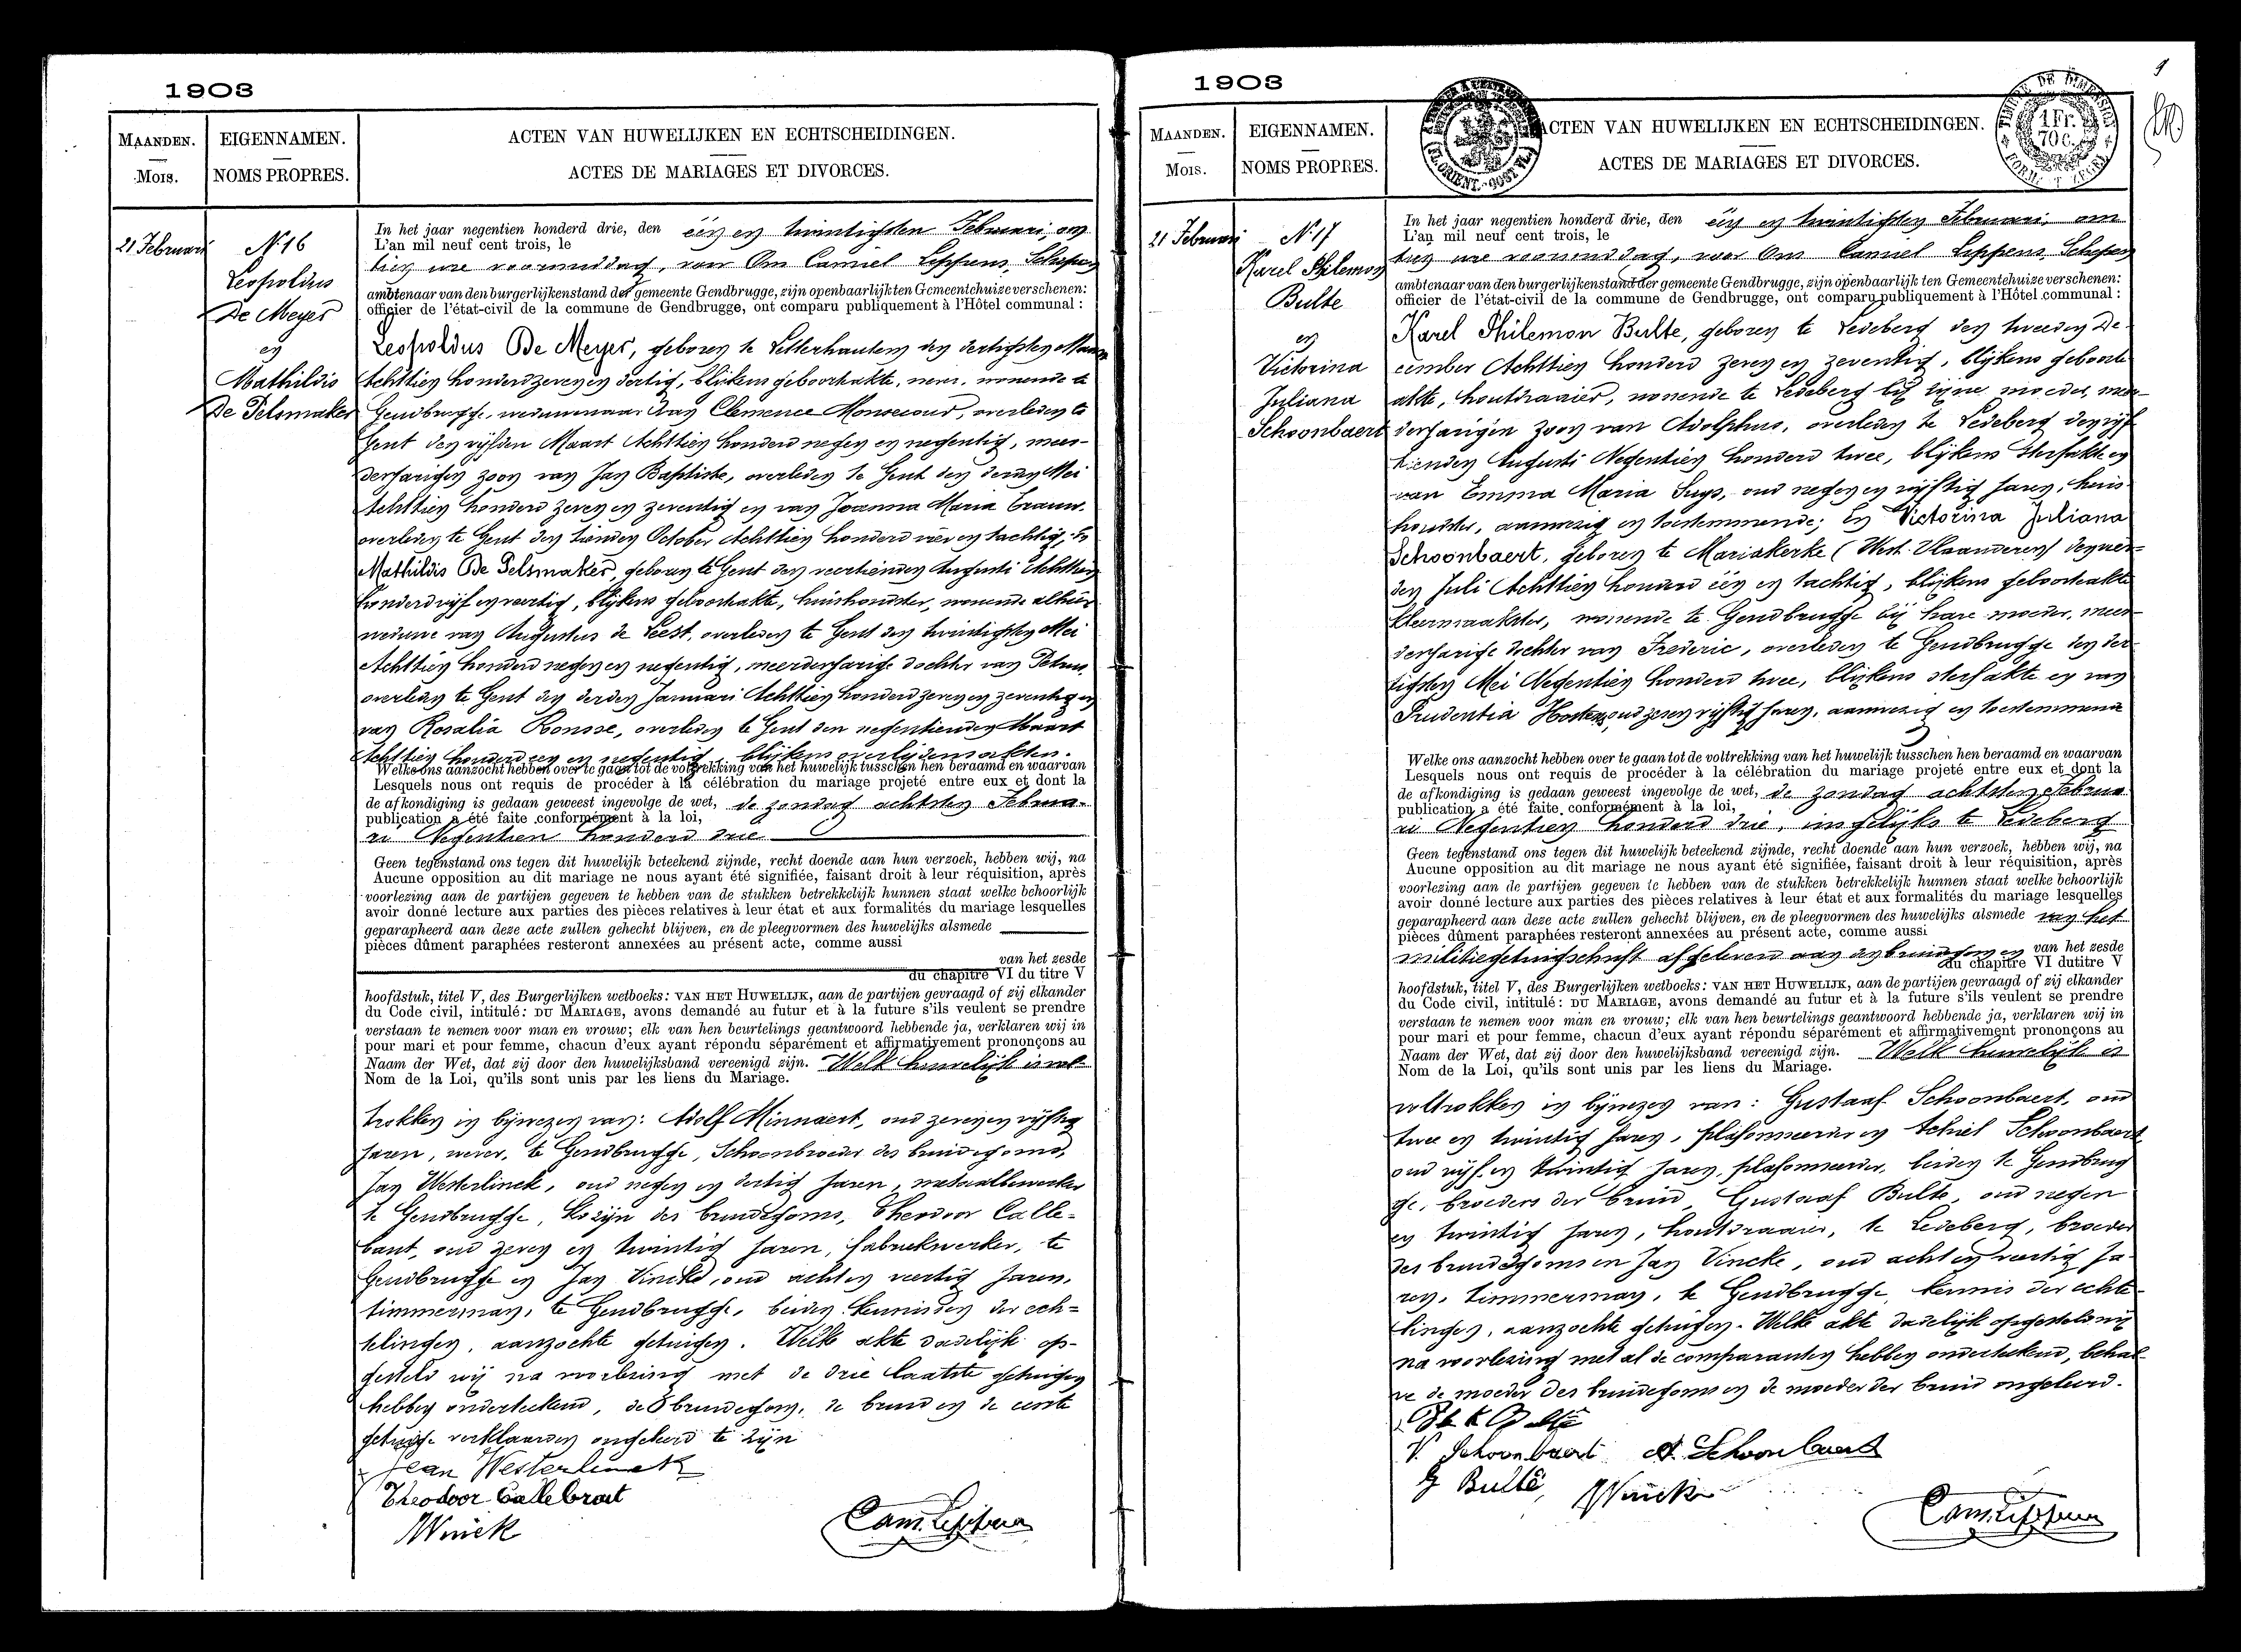 1903
MAANDEN.
Mois.
EIGENNAMEN.
NOMS PROPRES.
ACTEN VAN HUWELIJKEN EN ECHTSCHEIDINGEN.
ACTES DE MARIAGES ET DIVORCES.
21 Februari
N° 16
Leopoldus
De Meyer
en
Mathildis
De Pelsmaker
In het jaar negentien honderd drie, den één en twintigsten Februari, om
L'an mil neuf cent trois, le
tien ure voormiddag, voor Ons Camiel Leppens, Schepen
ambtenaar van den burgerlijkenstand der gemeente Gendbrugge, zijn openbaarlijk ten Gemeentehuize verschenen:
officier de l'état-civil de la commune de Gendbrugge, ont comparu publiquement à l'Hôtel communal :
Leopoldus De Meyer, geboren te Letterhautem den dertigsten Maart
Achttien honderd zeven en dertig, blijkens geboorteakte, wever, wonende te
Gendbrugge, weduwenaar van Clemence Monsecour, overleden te
Gent den vijfden Maart Achttien honderd negen en negentig, meer-
derjarigen zoon van Jan Baptiste, overleden te Gent den derden Mei
Achttien honderd zeven en zeventig en van Joanna Maria
overleden te Gent den tienden October Achttien honderd vier en tachtig, En
Mathildis De Pelsmaker, geboren te Gent den veertienden Augusti Achttien
honderd vijf en veertig, blijkens geboorteakte, huishoudster, wonende alhier
weduwe van Augustus de Leest, overleden te Gent den twintigsten Mei
Achttien honderd negen en negentig, meerderjarige dochter van Petrus,
overleden te Gent den derden Januari Achttien honderd zeven en zeventig en
van Rosalia Ronsse, overleden te Gent den negentienden Maart
Achttien honderd een en negentig, blijkens overlijdensakten.
Welke ons aanzocht hebben over te gaan tot de voltrekking van het huwelijk tusschen hen beraamd en waarvan
Lesquels nous ont requis de procéder à la célébration du mariage projeté entre eux et dont la
de afkondiging is gedaan geweest ingevolge de wet, de zondag achtsten Februa-
publication a été faite conformément à la loi,
ri Negentien honderd drie
Geen tegenstand ons tegen dit huwelijk beteekend zijnde, recht doende aan hun verzoek, hebben wij, na
Aucune opposition au dit mariage ne nous ayant été signifiée, faisant droit à leur réquisition, après
voorlezing aan de partijen gegeven te hebben van de stukken betrekkelijk hunnen staat welke behoorlijk
avoir donné lecture aux parties des pièces relatives à leur état et aux formalités du mariage lesquelles
geparapheerd aan deze acte zullen gehecht blijven, en de pleegvormen des huwelijks alsmede
pièces dûment paraphées resteront annexées au présent acte, comme aussi
van het zesde
du chapitre VI du titre V
hoofdstuk, titel V, des Burgerlijken wetboeks: VAN HET HUWELIJK, aan de partijen gevraagd of zij elkander
du Code civil, intitulé: DU MARIAGE, avons demandé au futur et à la future s'ils veulent se prendre
verstaan te nemen voor man en vrouw; elk van hen beurtelings geantwoord hebbende ja, verklaren wij in
pour mari et pour femme, chacun d'eux ayant répondu séparément et affirmativement prononçons au
Naam der Wet, dat zij door den huwelijksband vereenigd zijn. Welk huwelijk is vol-
Nom de la Loi, qu'ils sont unis par les liens du Mariage.
trokken in bijwezen van: Adolf Minnaert, oud zeven en vijftig
jaren, wever, te Gendbrugge, Schoonbroeder des bruidegoms,
Jan Westerlinck, oud negen en dertig jaren, metaalbewerker
te Gendbrugge, Kozijn des bruidegoms, Theodoor Calle-
baut, oud zeven en twintig jaren, fabriekwerker, te
Gendbrugge en Jan Vincke, oud acht en veertig jaren,
timmerman, te Gendbrugge, beiden kennissen der ech-
telingen, aanzochte getuigen. Welke akte dadelijk op-
gesteld wij na voorlezing met de drie laatste getuigen
hebben onderteekend, de bruidegom, de bruid en de eerste
getuige verklaarden ongeleerd te zijn
Jean Westerlinck
Theodoor Callebaut
JVinck
Cam. Leppens
1903
MAANDEN.
Mois.
EIGENNAMEN.
NOMS PROPRES.
ACTEN VAN HUWELIJKEN EN ECHTSCHEIDINGEN.
ACTES DE MARIAGES ET DIVORCES.
TIMBRE DE DIMENSION
1 Fr.
70 C.
9
21 Februari
N° 17
Karel Philemon
Bulte
en
Victorina
Juliana
Schoonbaert
In het jaar negentien honderd drie, den één en twintigsten Februari, om
L'an mil neuf cent trois, le
tien ure voormiddag, voor Ons Camiel Leppens Schepen
ambtenaar van den burgerlijkenstand der gemeente Gendbrugge, zijn openbaarlijk ten Gemeentehuize verschenen:
officier de l'état-civil de la commune de Gendbrugge, ont comparu publiquement à l'Hôtel communal :
Karel Philemon Bulte, geboren te Ledeberg den tweeden De-
cember Achttien honderd zeven en zeventig, blijkens geboorte
akte, houtdraaier, wonende te Ledeberg bij zijne moeder, meer-
derjarigen zoon van Adolphus, overleden te Ledeberg den vijf
tienden Augusti Negentien honderd twee, blijkens sterfakte en
van Emma Maria Suys, oud negen en vijftig jaren, huis-
houdster, aanwezig en toestemmende; En Victorina Juliana
Schoonbaert, geboren te Mariakerke (West-Vlaanderen) den vier-
den Juli Achttien honderd één en tachtig, blijkens geboorteakte
kleermaakster, wonende te Gendbrugge bij hare moeder, meer-
derjarige dochter van Frederic, overleden te Gendbrugge den der-
tigsten Mei Negentien honderd twee, blijkens sterfakte en van
Prudentia Hosten, oud zeven vijftig jaren, aanwezig en toestemmend
Welke ons aanzocht hebben over te gaan tot de voltrekking van het huwelijk tusschen hen beraamd en waarvan
Lesquels nous ont requis de procéder à la célébration du mariage projeté entre eux et dont la
de afkondiging is gedaan geweest ingevolge de wet, de zondag achtsten Februa
publication a été faite conformément à la loi,
ri Negentien honderd drie, insgelijks te Ledeberg
Geen tegenstand ons tegen dit huwelijk beteekend zijnde, recht doende aan hun verzoek, hebben wij, na
Aucune opposition au dit mariage ne nous ayant été signifiée, faisant droit à leur réquisition, après
voorlezing aan de partijen gegeven te hebben van de stukken betrekkelijk hunnen staat welke behoorlijk
avoir donné lecture aux parties des pièces relatives à leur état et aux formalités du mariage lesquelles
geparapheerd aan deze acte zullen gehecht blijven, en de pleegvormen des huwelijks alsmede van het
pièces dûment paraphées resteront annexées au présent acte, comme aussi
militiegetuigschrift afgeleverd aan den bruidegom en van het zesde
du chapitre VI du titre V
hoofdstuk, titel V, des Burgerlijken wetboeks: VAN HET HUWELIJK, aan de partijen gevraagd of zij elkander
du Code civil, intitulé: DU MARIAGE, avons demandé au futur et à la future s'ils veulent se prendre
verstaan te nemen voor man en vrouw; elk van hen beurtelings geantwoord hebbende ja, verklaren wij in
pour mari et pour femme, chacun d'eux ayant répondu séparément et affirmativement prononçons au
Naam der Wet, dat zij door den huwelijksband vereenigd zijn. Welk huwelijk is
Nom de la Loi, qu'ils sont unis par les liens du Mariage.
voltrokken in bijwezen van: Gustaaf Schoonbaert, oud
twee en twintig jaren, plafonneerder en Achiel Schoonbaert
oud vijf en twintig jaren, plafonneerder, beiden te Gendbrug
ge, broeders der bruid, Gustaaf Bulte, oud negen
en twintig jaren, houtdraaier, te Ledeberg, broeder
des bruidegoms en Jan Vincke, oud acht en veertig ja-
ren, timmerman, te Gendbrugge, kennis der echte-
lingen, aanzochte getuigen. Welke akte dadelijk opgesteld wij
na voorlezing met al de comparanten hebben onderteekend, behal-
ve de moeder des bruidegoms en de moeder der bruid ongeleerd.
V. Schoonbaert A. Schoonbaert
G Bulte, JVinck
Cam. Leppens